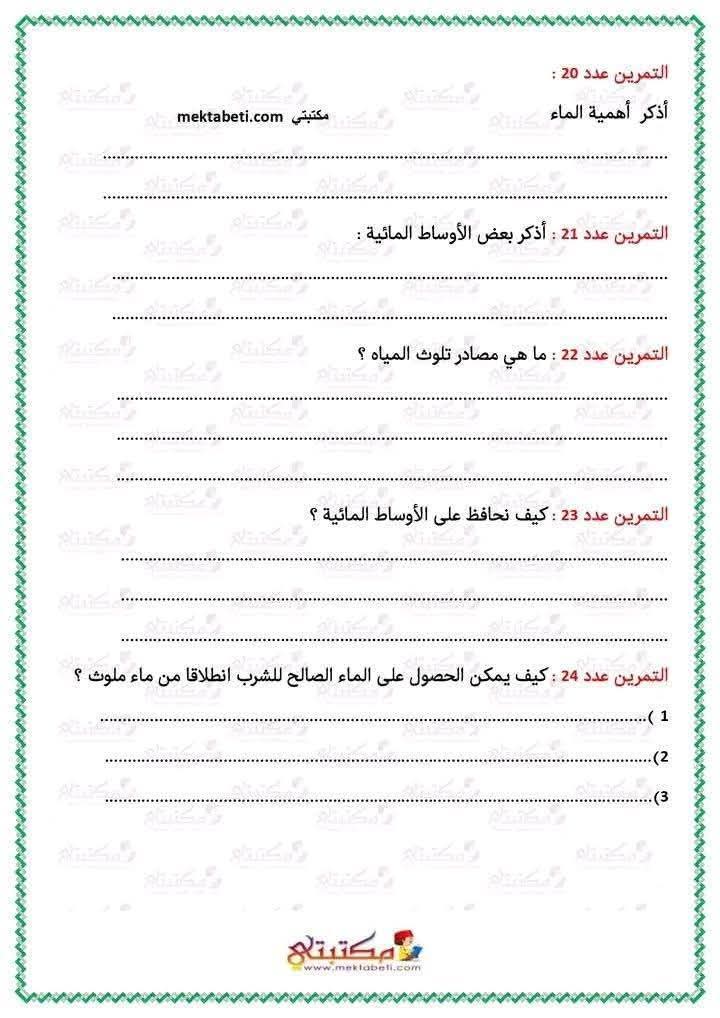 التمرين عدد 20 :
أذكر أهمية الماء مكتبتي mektabeti.com
................................................................................
................................................................................
التمرين عدد 21 : أذكر بعض الأوساط المائية :
................................................................................
................................................................................
التمرين عدد 22 : ما هي مصادر تلوث المياه ؟
................................................................................
................................................................................
................................................................................
التمرين عدد 23 : كيف نحافظ على الأوساط المائية ؟
................................................................................
................................................................................
................................................................................
التمرين عدد 24 : كيف يمكن الحصول على الماء الصالح للشرب انطلاقا من ماء ملوث ؟
1 )................................................................................
2)................................................................................
3)................................................................................
مكتبتي
www.mektabeti.com